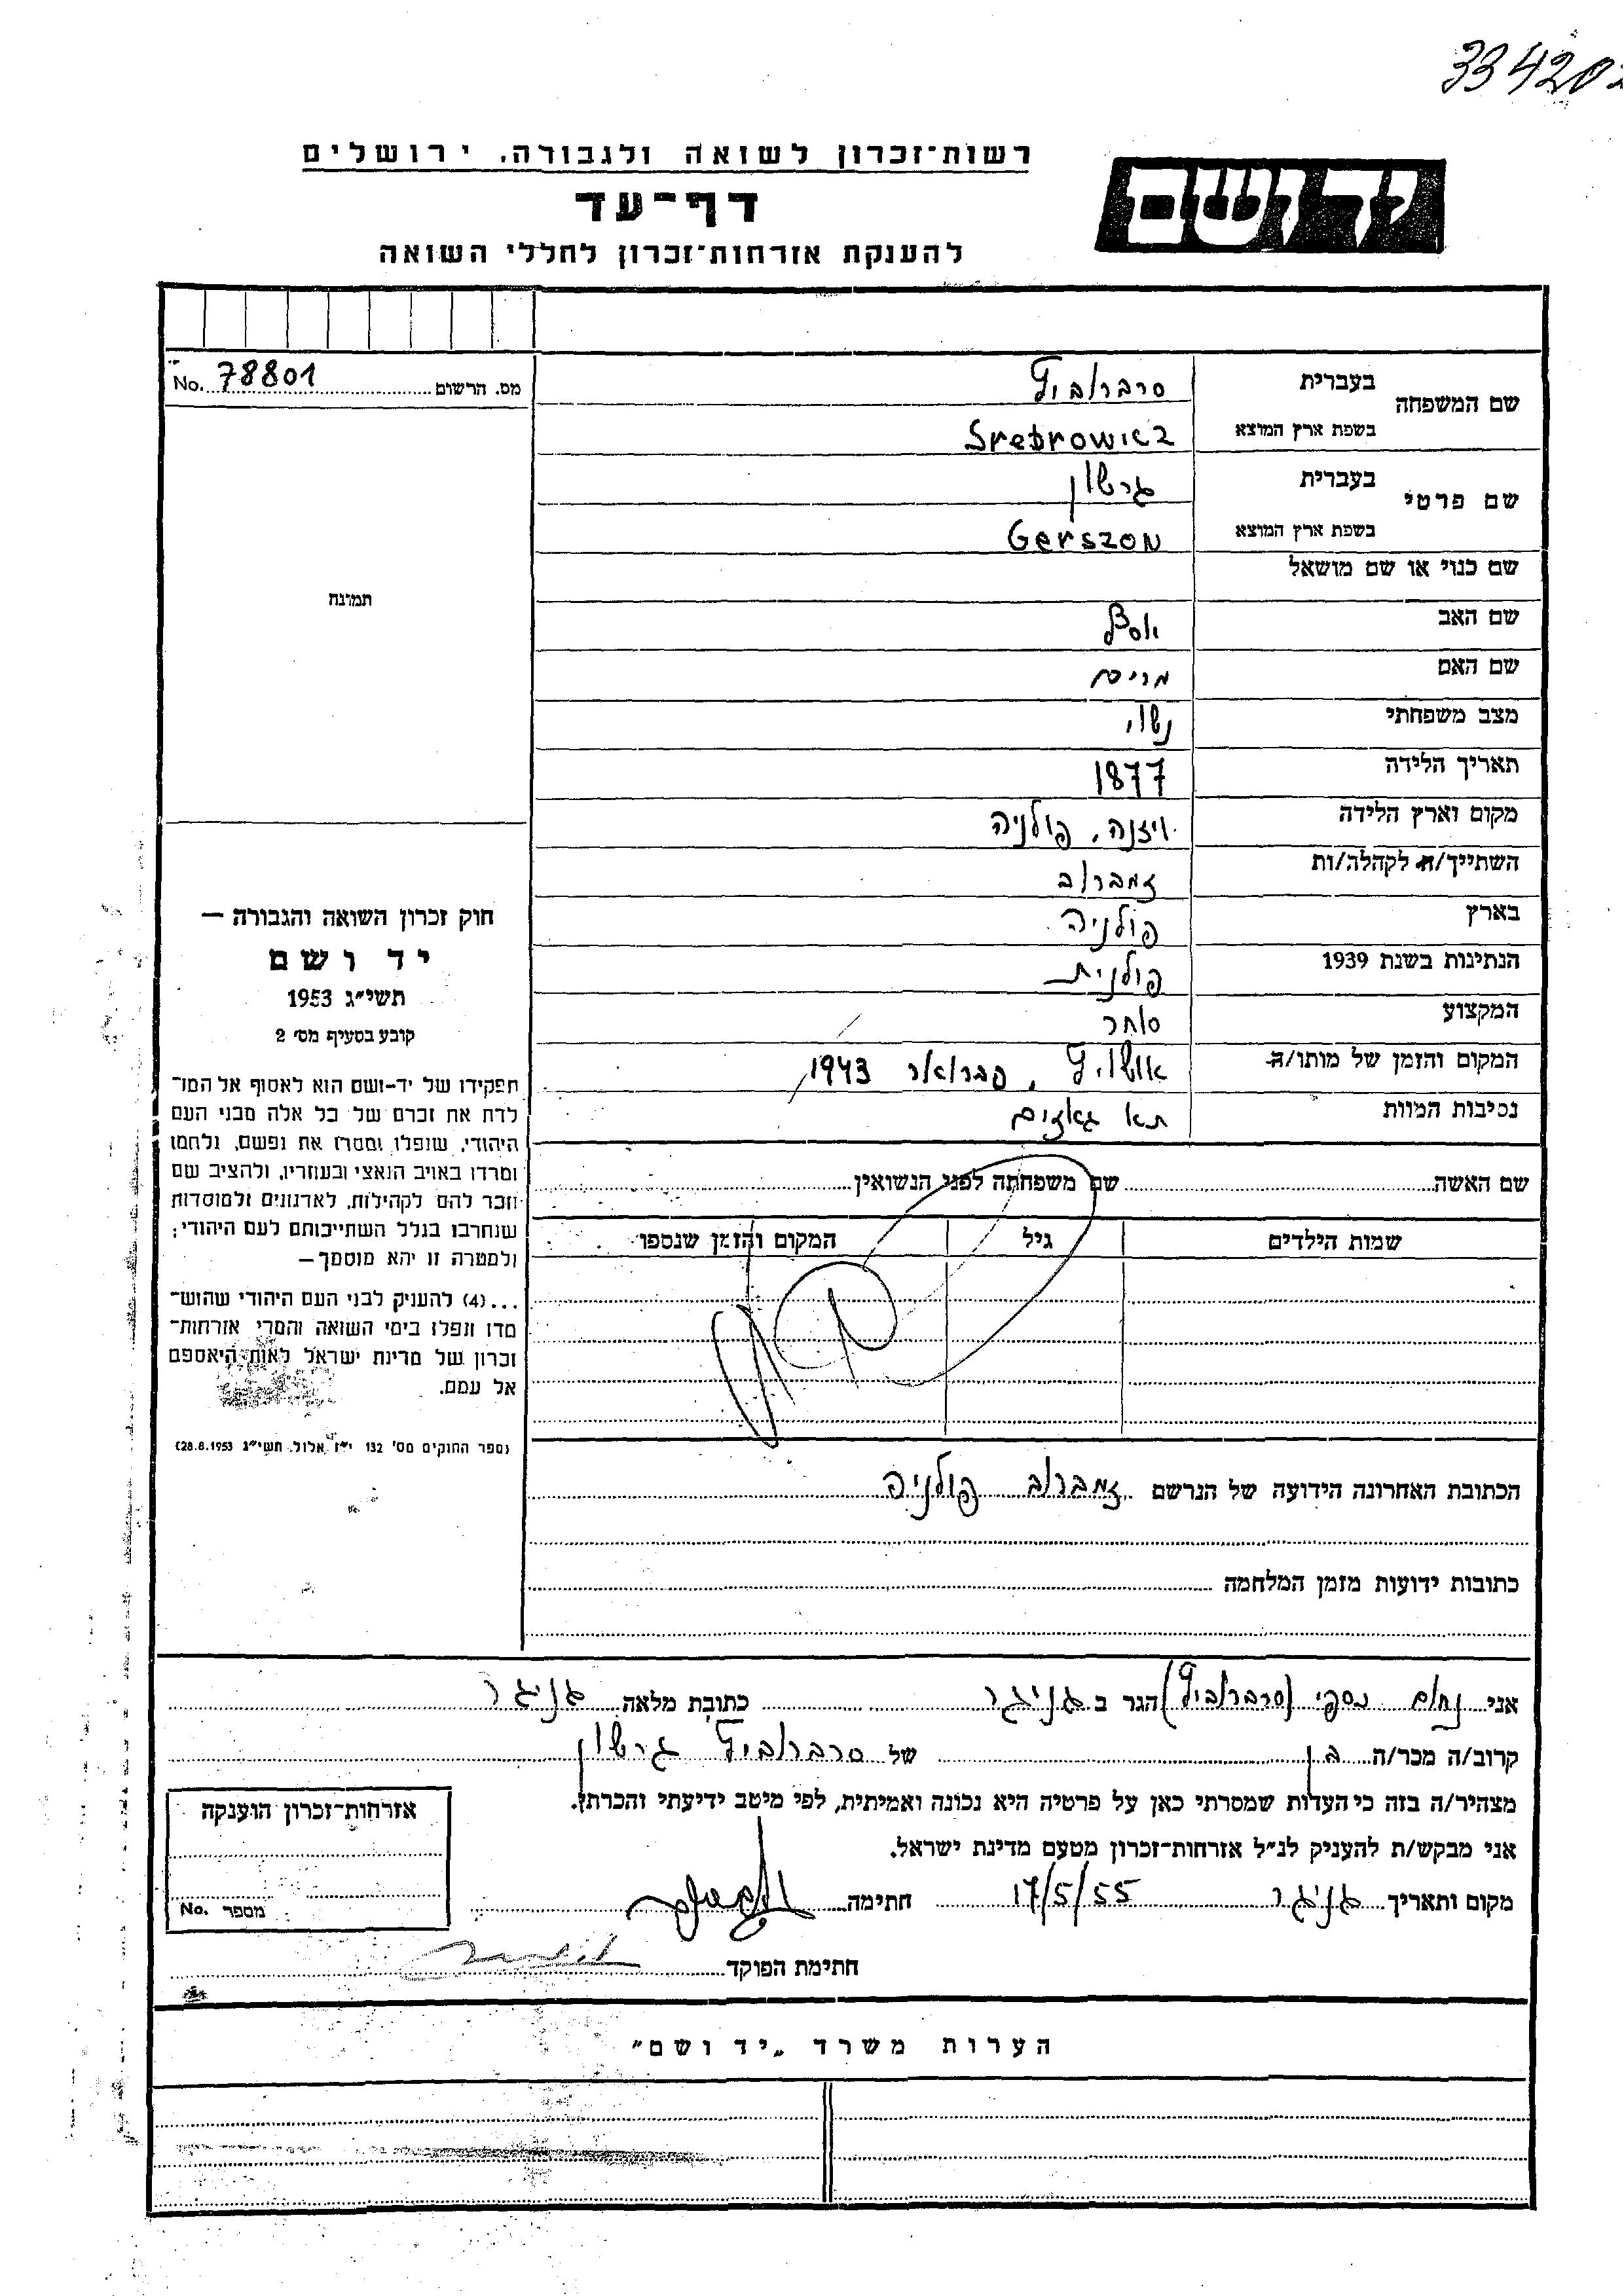 334202
רשות־זכרון לשואה ולגבורה, ירושלים
יד ושם
דף־עד
להענקת אזרחות־זכרון לחללי השואה
מס. הרשום 78801 No.
שם המשפחה
בעברית סרברוביץ
בשפת ארץ המוצא Srebrowicz
שם פרטי
בעברית גרשון
בשפת ארץ המוצא Gerszon
שם כנוי או שם מושאל
תמונה
שם האב יוסף
שם האם מרים
מצב משפחתי נשוי
תאריך הלידה 1877
מקום וארץ הלידה ויזנה, פולניה
השתייך/ה לקהלה/ות זמברוב
בארץ פולניה
הנתינות בשנת 1939 פולנית
המקצוע סוחר
המקום והזמן של מותו/ה אושויץ, פברואר 1943
נסיבות המוות תא גאזים
חוק זכרון השואה והגבורה —
יד ושם
תשי״ג 1953
קובע בסעיף מס׳ 2
תפקידו של יד-ושם הוא לאסוף אל המו־
לדת את זכרם של כל אלה מבני העם
היהודי, שנפלו ומסרו את נפשם, נלחמו
ומרדו באויב הנאצי ובעוזריו, ולהציב שם
וזכר להם לקהילות, לארגונים ולמוסדות
שנחרבו בגלל השתייכותם לעם היהודי;
ולמטרה זו יהא מוסמך—
...(4) להעניק לבני העם היהודי שהוש־
מדו ונפלו בימי השואה והמרי אזרחות־
זכרון של מדינת ישראל לאות היאספם
אל עמם.
(ספר החוקים מס׳ 132 י״ז אלול תשי״ג 28.8.1953)
שם האשה שם משפחתה לפני הנשואין
שמות הילדים גיל המקום והזמן שנספו
הכתובת האחרונה הידועה של הנרשם זמברוב פולניה
כתובות ידועות מזמן המלחמה
אני נחום כספי (סרברוביץ) הגר ב גניגר כתובת מלאה גניגר
קרוב/ה מכר/ה בן של סרברוביץ גרשון
מצהיר/ה בזה כי העדות שמסרתי כאן על פרטיה היא נכונה ואמיתית, לפי מיטב ידיעתי והכרתי.
אני מבקש/ת להעניק לנ״ל אזרחות־זכרון מטעם מדינת ישראל.
מקום ותאריך גניגר 17/5/55 חתימה
חתימת הפוקד
אזרחות־זכרון הוענקה
מספר No.
הערות משרד „יד ושם״